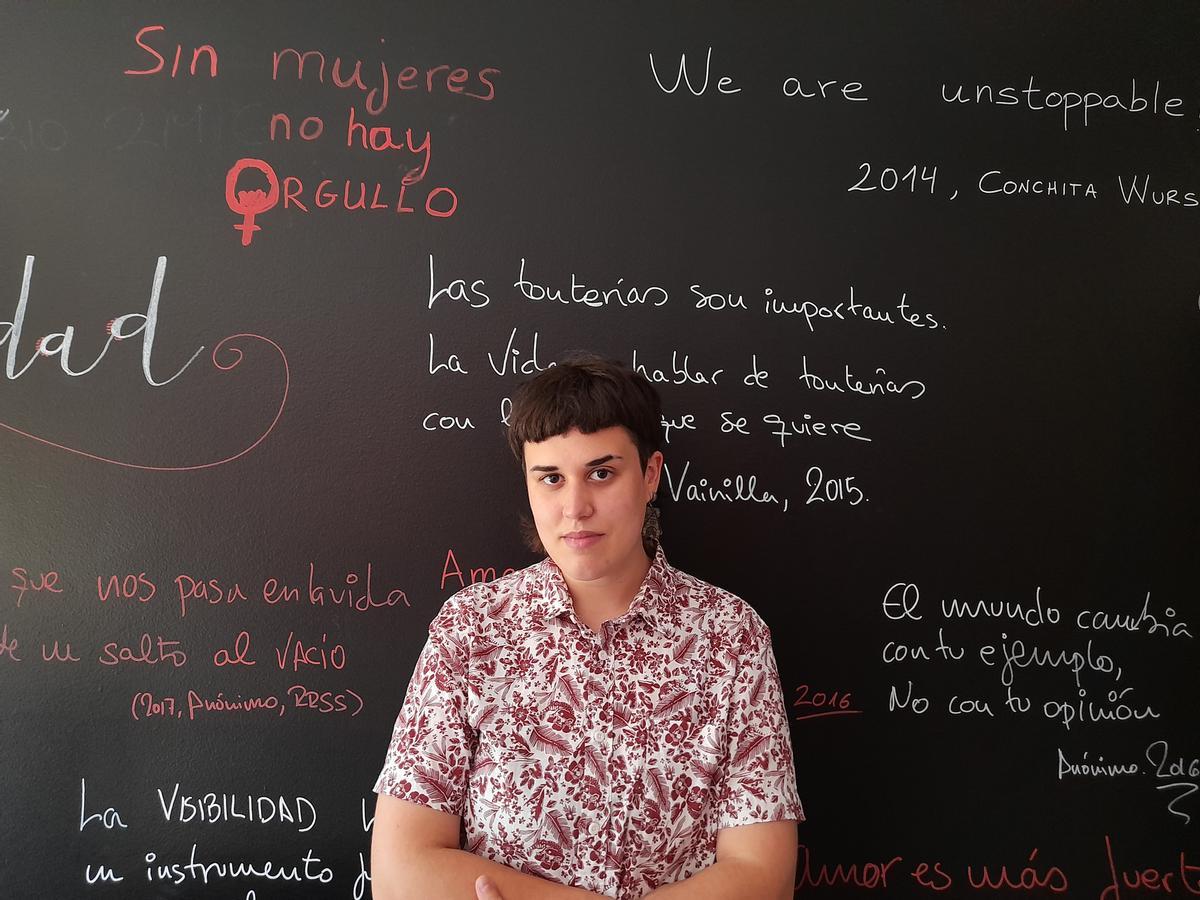 Sin mujeres
no hay
ORGULLO
We are unstoppable
2014, CONCHITA WURS
dad
Las tonterías son importantes.
La vida hablar de tonterías
con que se quiere
Vainilla, 2015.
que nos pasa en la vida Am
de un salto al VACÍO
(2017, Anónimo, RRSS)
El mundo cambia
con tu ejemplo,
2016 No con tu opinión
Anónimo. 2016
La VISIBILIDAD
un instrumento
Amor es más fuert